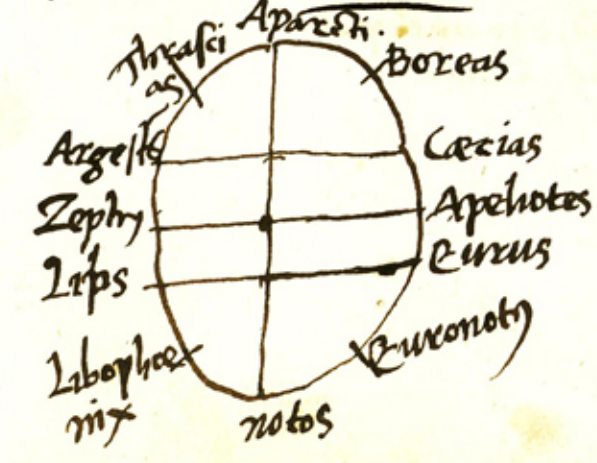 Aparcti.
Thrasci
as
Boreas
Argestes
Cæcias
Zephy
Apeliotes
Lips
Eurus
Libophoe
nix
Euronotꝰ
notos